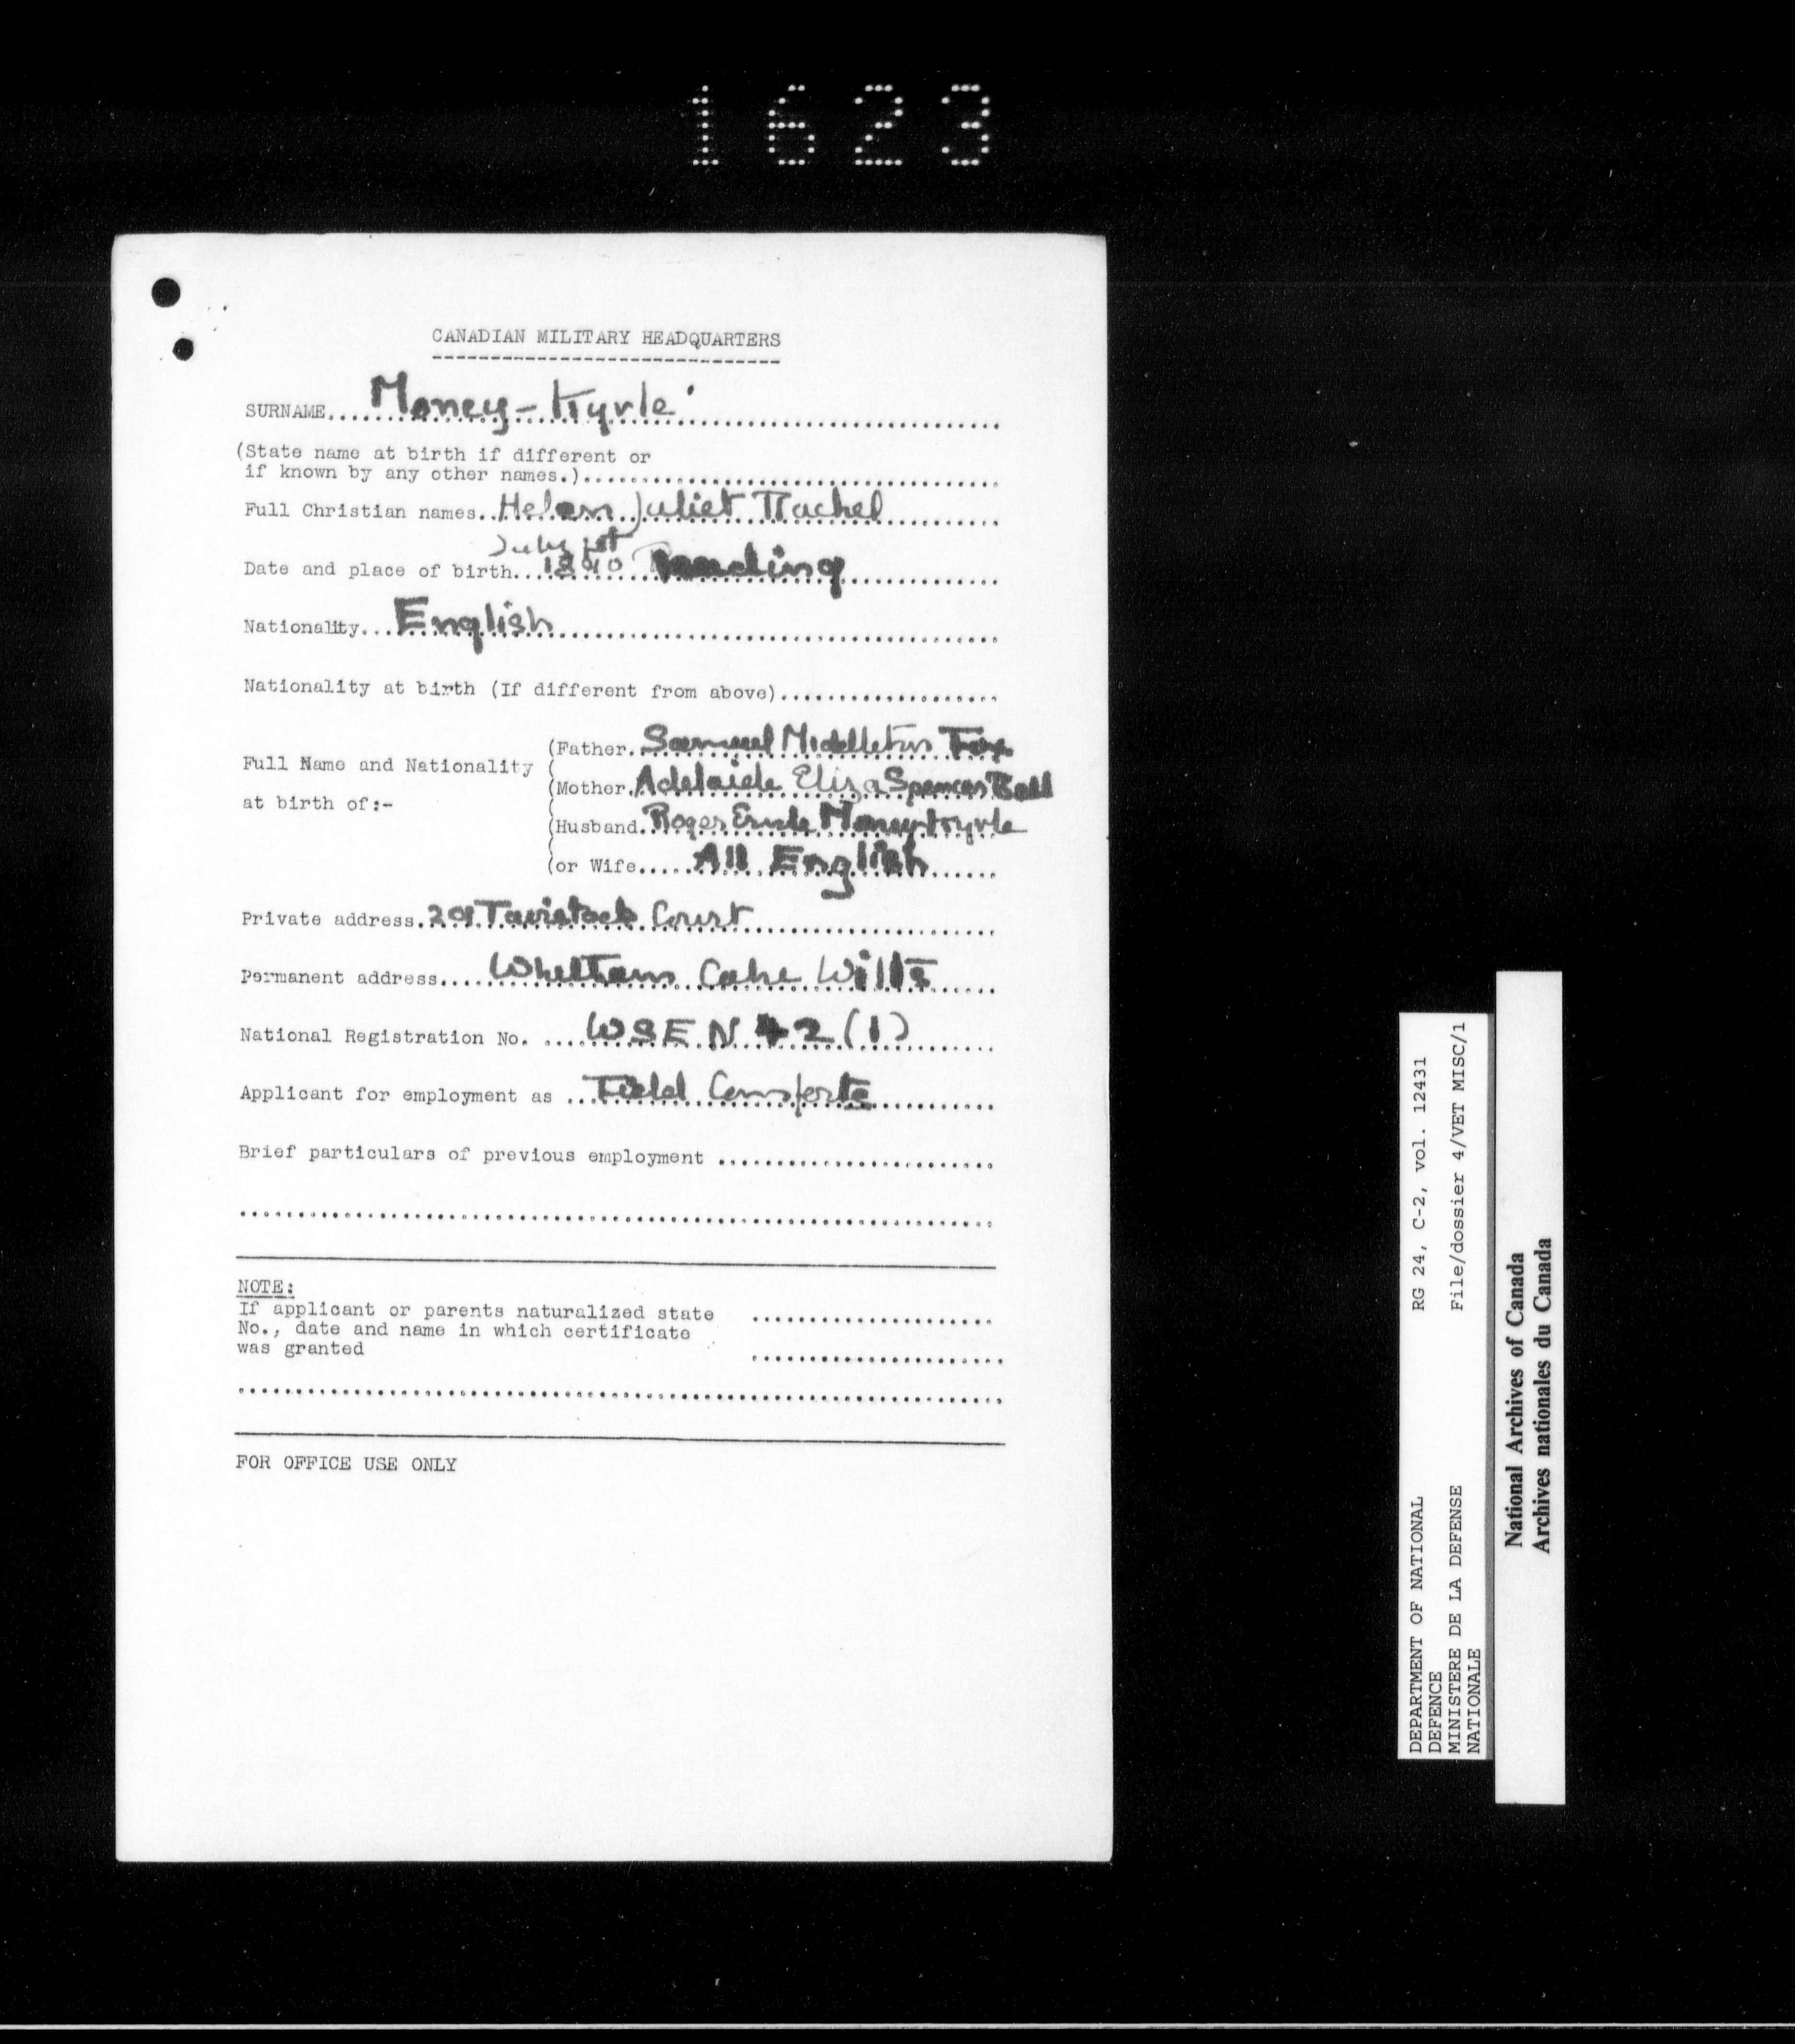 1623
CANADIAN MILITARY HEADQUARTERS
SURNAME....Money-Kyrle
(State name at birth if different or
if known by any other names.)
Full Christian names..Helen Juliet Rachel
July 1st
Date and place of birth...1890 Reading
Nationality...English
Nationality at birth (If different from above)
Full Name and Nationality
at birth of:-
(Father. Samuel Middleton Fox
(Mother. Adelaide Eliza Spencer Bell
(Husband. Roger Ernle Money-Kyrle
(or Wife..... All English
Private address. 29 Tavistock Court
Permanent address.... Whetham Calne Wilts
National Registration No. .... WSEN 42 (1)
Applicant for employment as ... Field Comforts
Brief particulars of previous employment
NOTE:
If applicant or parents naturalized state
No., date and name in which certificate
was granted
FOR OFFICE USE ONLY
DEPARTMENT OF NATIONAL
DEFENCE
MINISTERE DE LA DEFENSE
NATIONALE
RG 24, C-2, vol. 12431
File/dossier 4/VET MISC/1
National Archives of Canada
Archives nationales du Canada